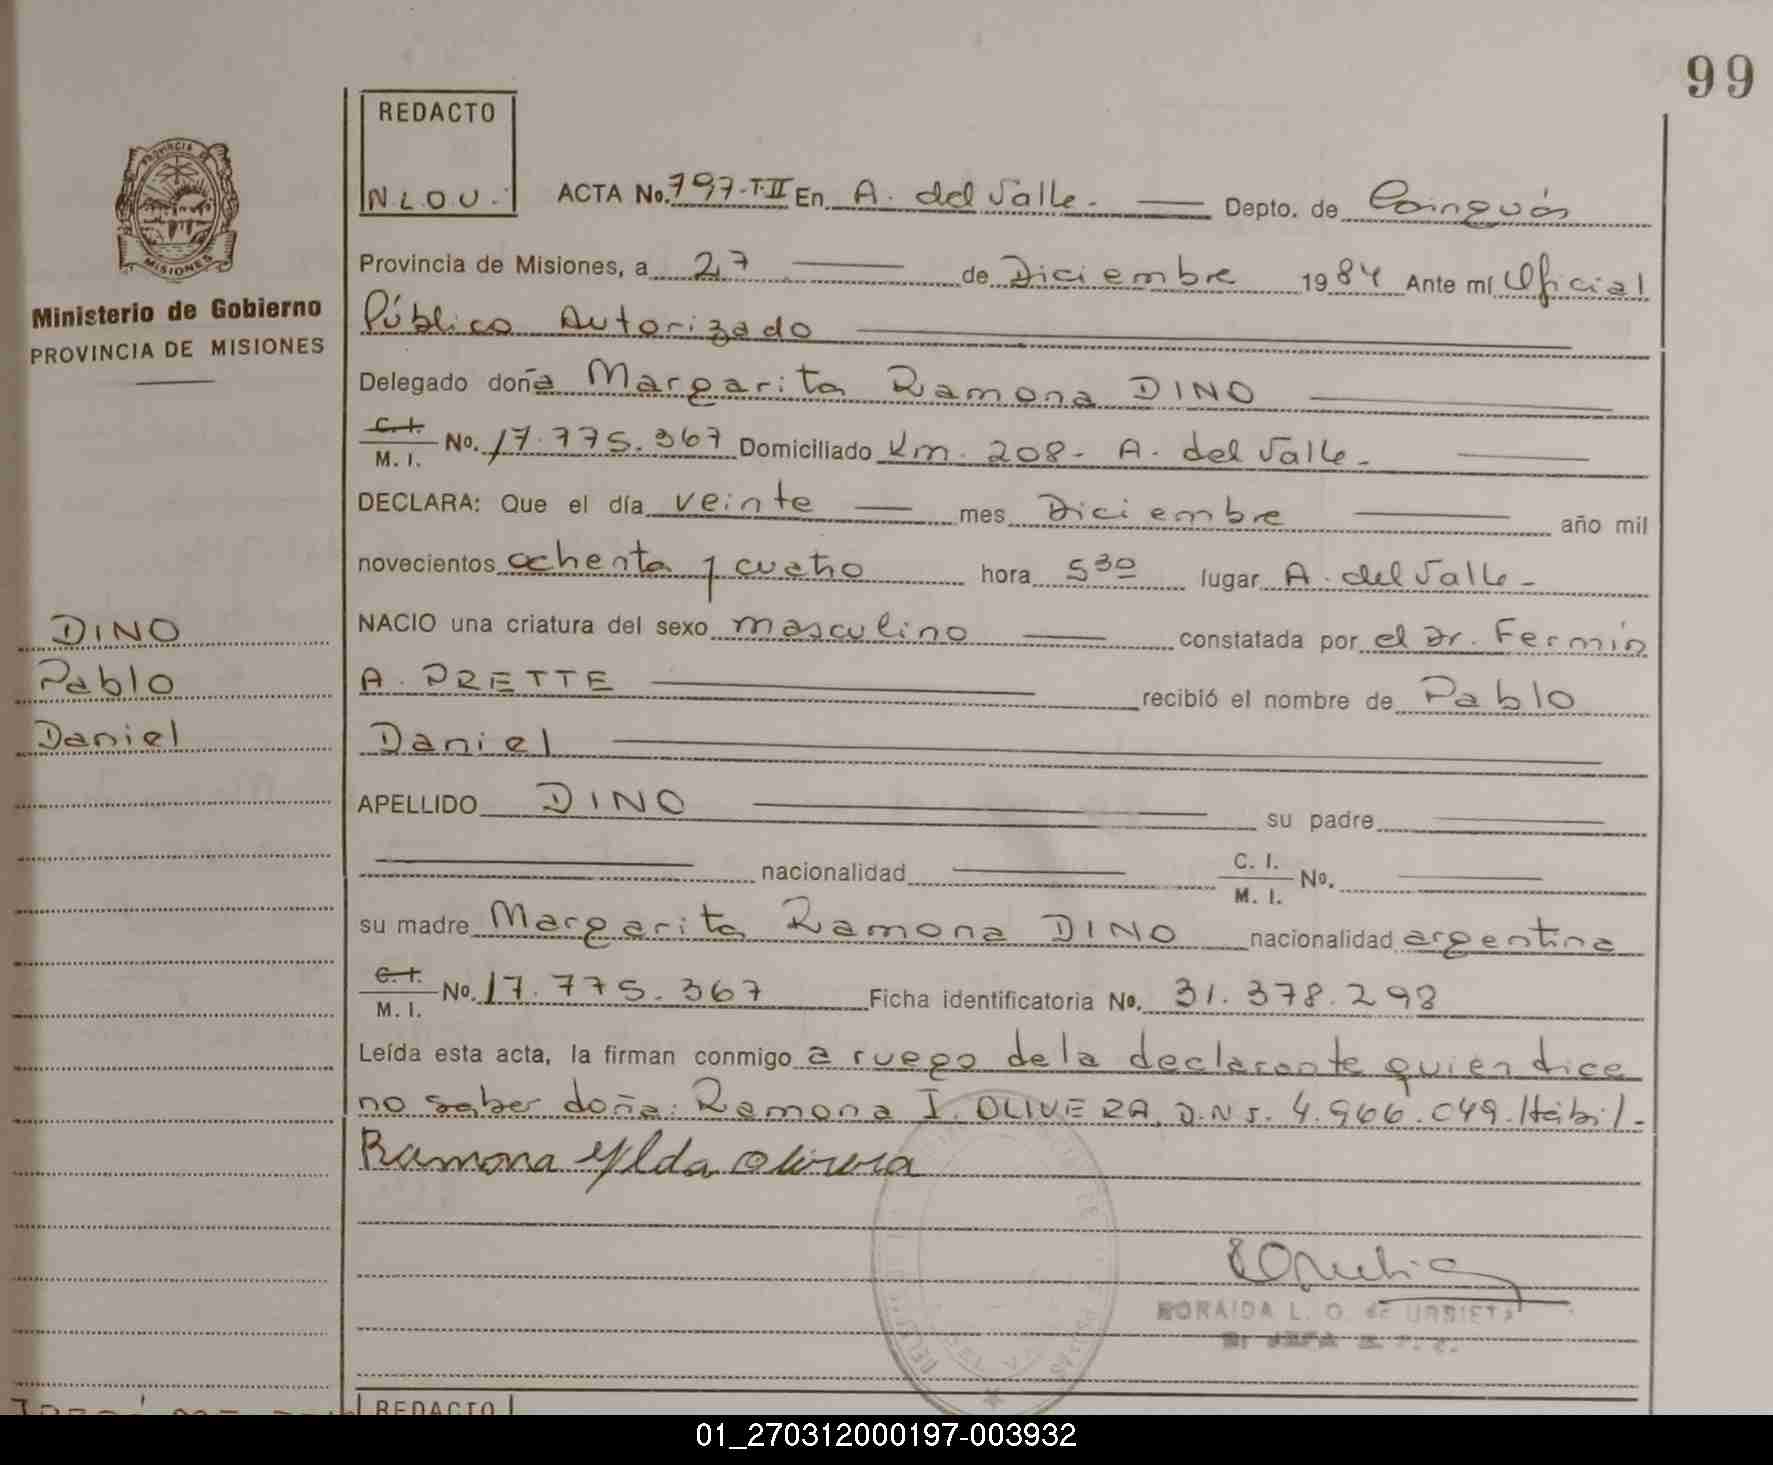 99
REDACTO
N.L.O.U.
ACTA No. 797-T.II En A. del Valle. Depto. de Cainguás
Provincia de Misiones, a 27 de Diciembre 1984 Ante mí Oficial
Público Autorizado
Delegado doña Margarita Ramona DINO
C.I.
M. I. No. 17.775.367 Domiciliado Km. 208- A. del Valle-
DECLARA: Que el día veinte mes Diciembre año mil
novecientos ochenta y cuatro hora 5 30 lugar A. del Valle-
NACIO una criatura del sexo masculino constatada por el Dr. Fermín
A. PRETTE recibió el nombre de Pablo
Daniel
APELLIDO DINO su padre
nacionalidad C. I.
M. I. No.
su madre Margarita Ramona DINO nacionalidad argentina
C.I.
M. I. No. 17.775.367 Ficha identificatoria No. 31.378.298
Leída esta acta, la firman conmigo a ruego de la declarante quien dice
no saber doña: Ramona I. OLIVERA, D.N.I. 4.966.049. Hábil-
Ramona Ylda Olivera
NORAIDA L. O. de URBIETA
PROVINCIA DE
MISIONES
Ministerio de Gobierno
PROVINCIA DE MISIONES
DINO
Pablo
Daniel
REDACTO
01_270312000197-003932